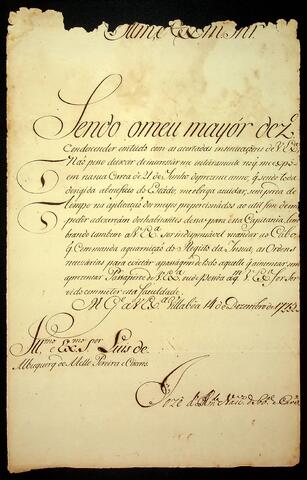 Illmo. e Exmo. Snr.
Sendo o meu mayór dez.o
Condescender em tudo com as acertadas insinuaçoens de V. Exa.
Naõ posso deixar de interessarme inteiramente no q me expôem
em na sua Carta de 21 de Junho do prezente anno, q sendo toda
dirigida a beneficio do Estado, me obriga a cuidar, sem perda de
tempo na aplicaçaõ dos meyos proporcionados ao util fim de im-
pedir a dezerçaõ dos habitantes desta para essa Capitanîa, lem-
brando tambem a V. Exa. ser indispensavel mandar ao Cabo
q Commanda a guarniçaõ do Regîsto da Insua, as Ordens
necessarias para evictar a passagem de todo aquelle q
aprezentar Passaporte de V. Exa. ou de pessoa a qm. V. Exa. for ser-
vido cometer esta faculdade.
Ds. Ge. a V. Exa. Villaboa 14 de Dezembro de 1733
Illmo. e Exmo. Snr. Luis de
Albuquerq de Mello Pereira e Caceres
Jozé d'Alm.da Vasc.os de Sobr.al e Carv.o